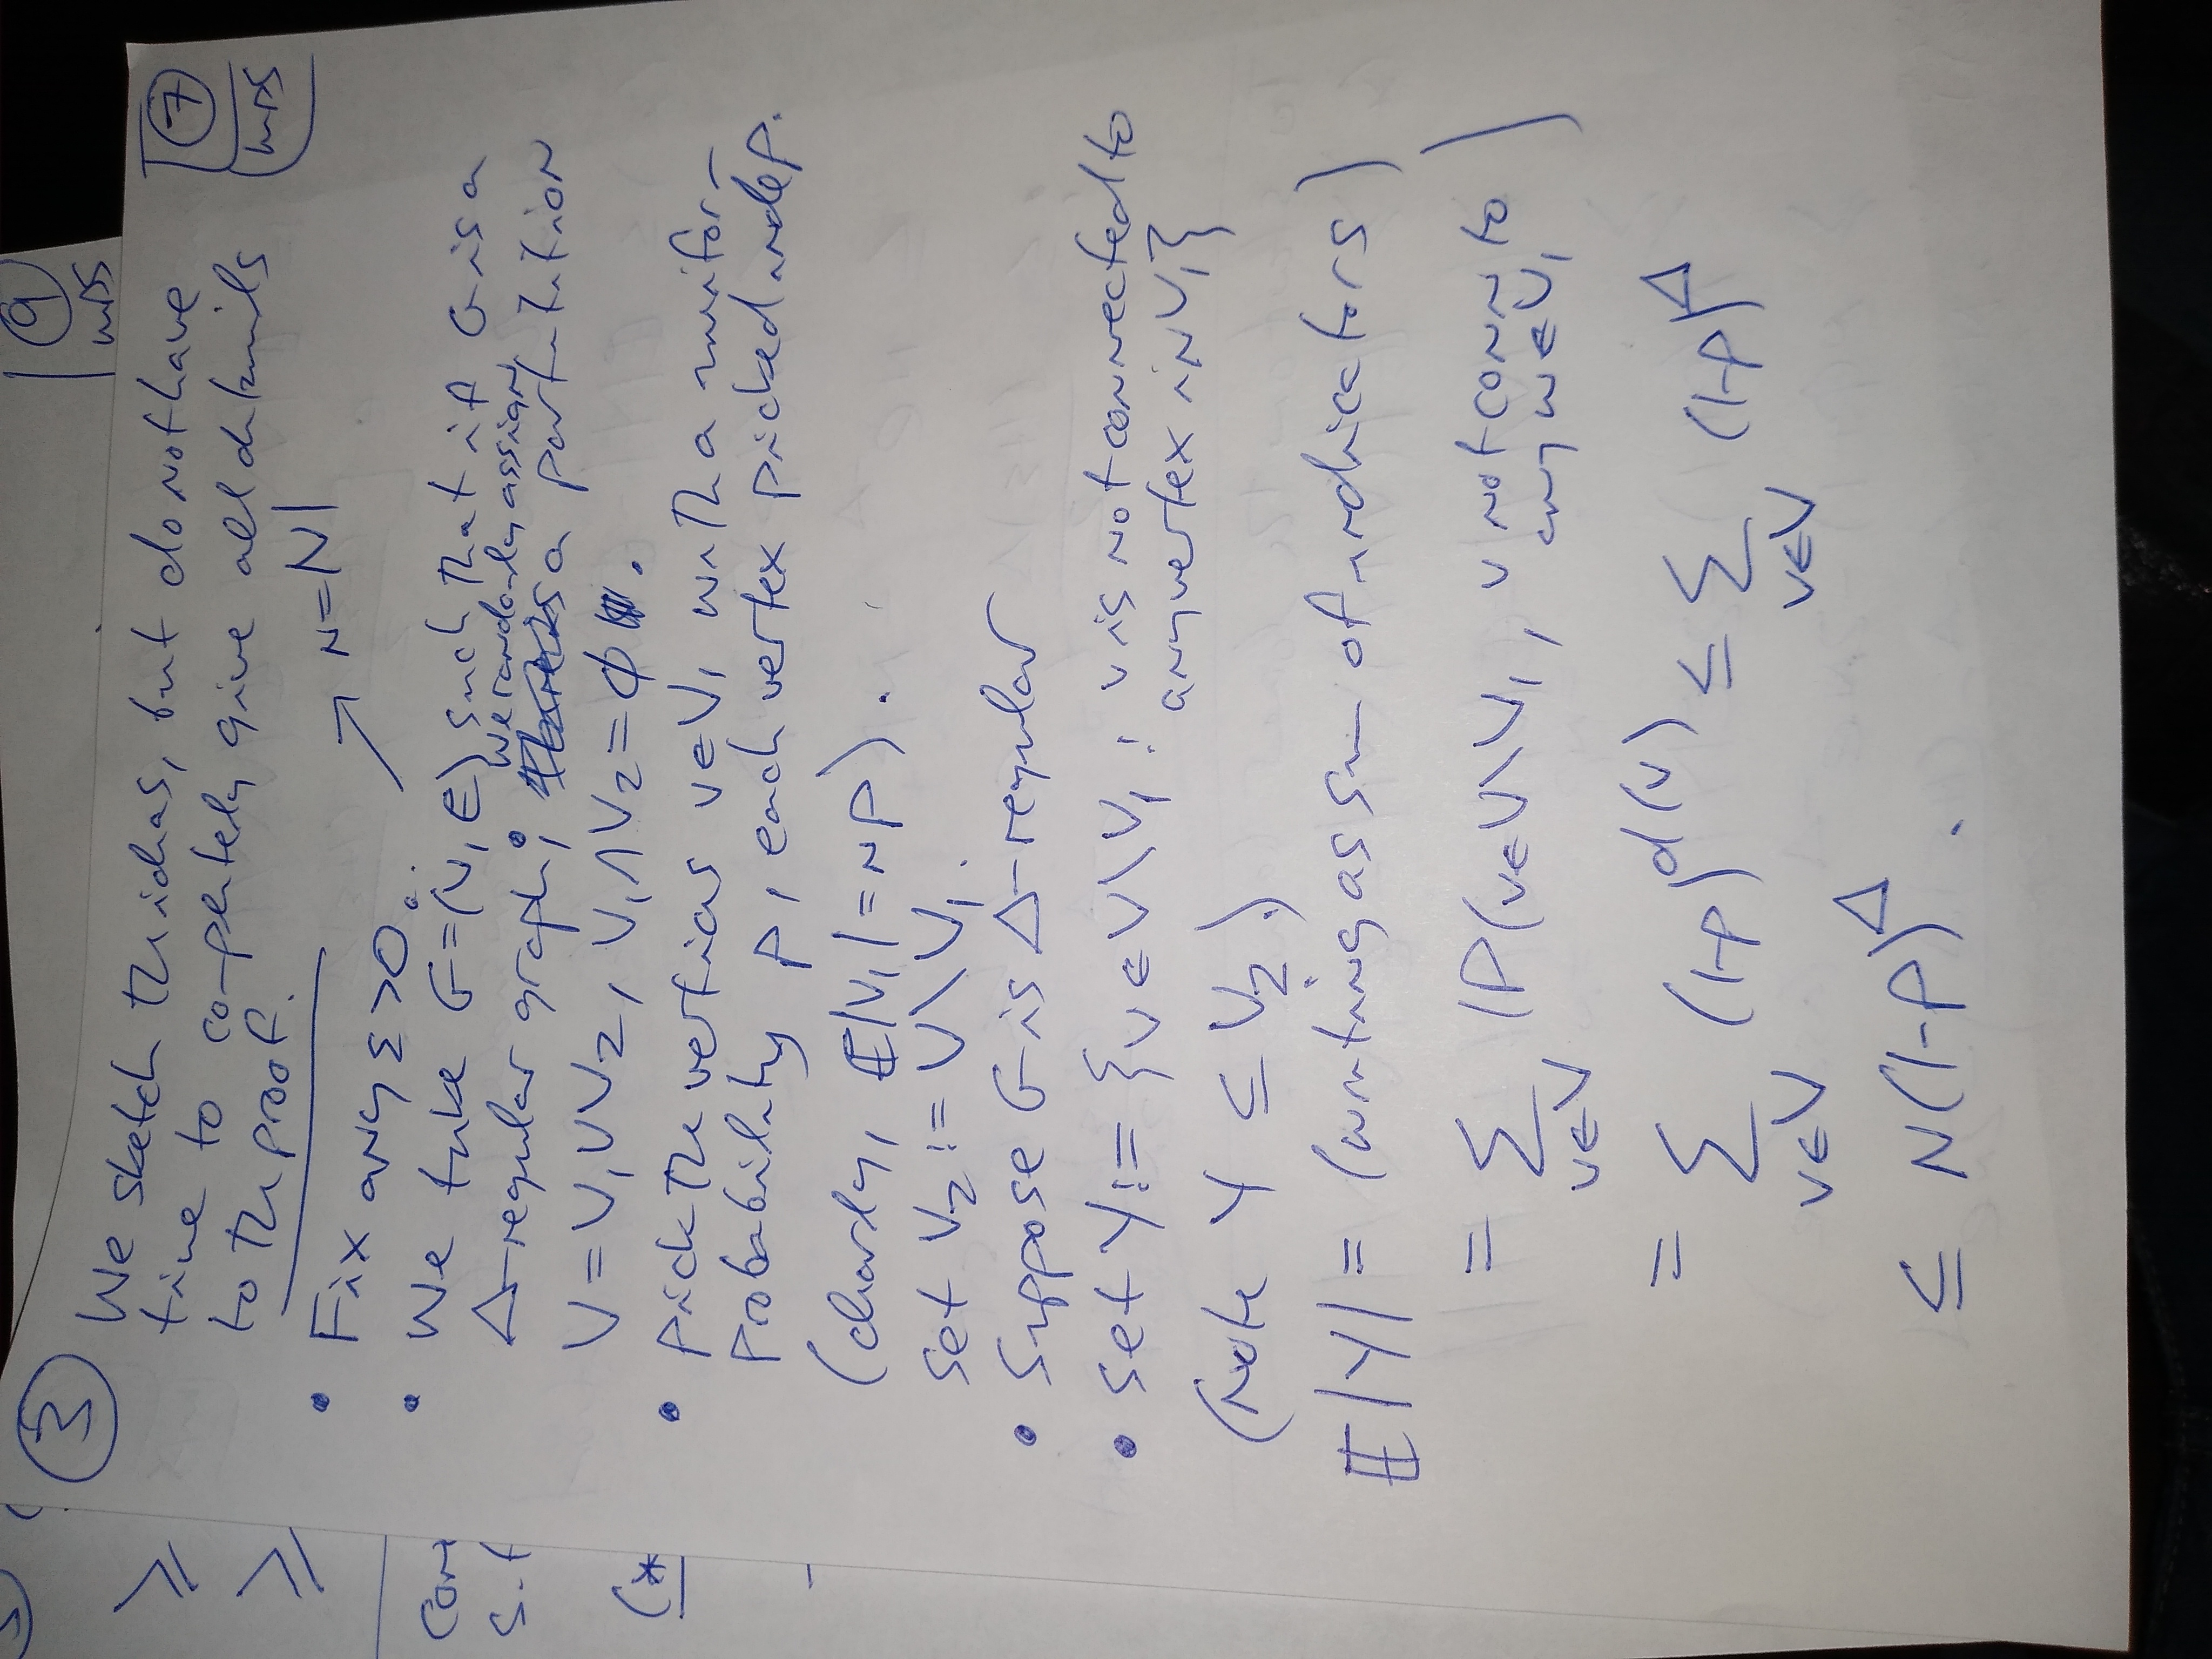 ③ We sketch the ideas, but do not have
time to completely give all details
to the proof.
⑦
MRS
• Fix any ε > 0.
→ n = |V|
• We take G = (V, E) such that if G is a
Δ-regular graph, we randomly assign
a partition
V = V₁ ∪ V₂, V₁ ∩ V₂ = ∅.
• Pick the vertices v ∈ V₁ with a unifor-
probability p, each vertex picked indep.
(clearly, 𝔼|V₁| = np).
Set V₂ := V \ V₁.
• Suppose G is Δ-regular
• Set Y := {v ∈ V \ V₁ : v is not connected to
any vertex in V₁}
(Note Y ⊆ V₂.)
𝔼|Y| = (writing as sum of indicators)
= Σ_{v∈V} ℙ(v ∈ V \ V₁, v not conn to
any w ∈ V₁)
= Σ_{v∈V} (1-p)^{d(v)} ≤ Σ_{v∈V} (1-p)^Δ
≤ n(1-p)^Δ.
⑨
MRS
≥
≥
Con
s.t
(*